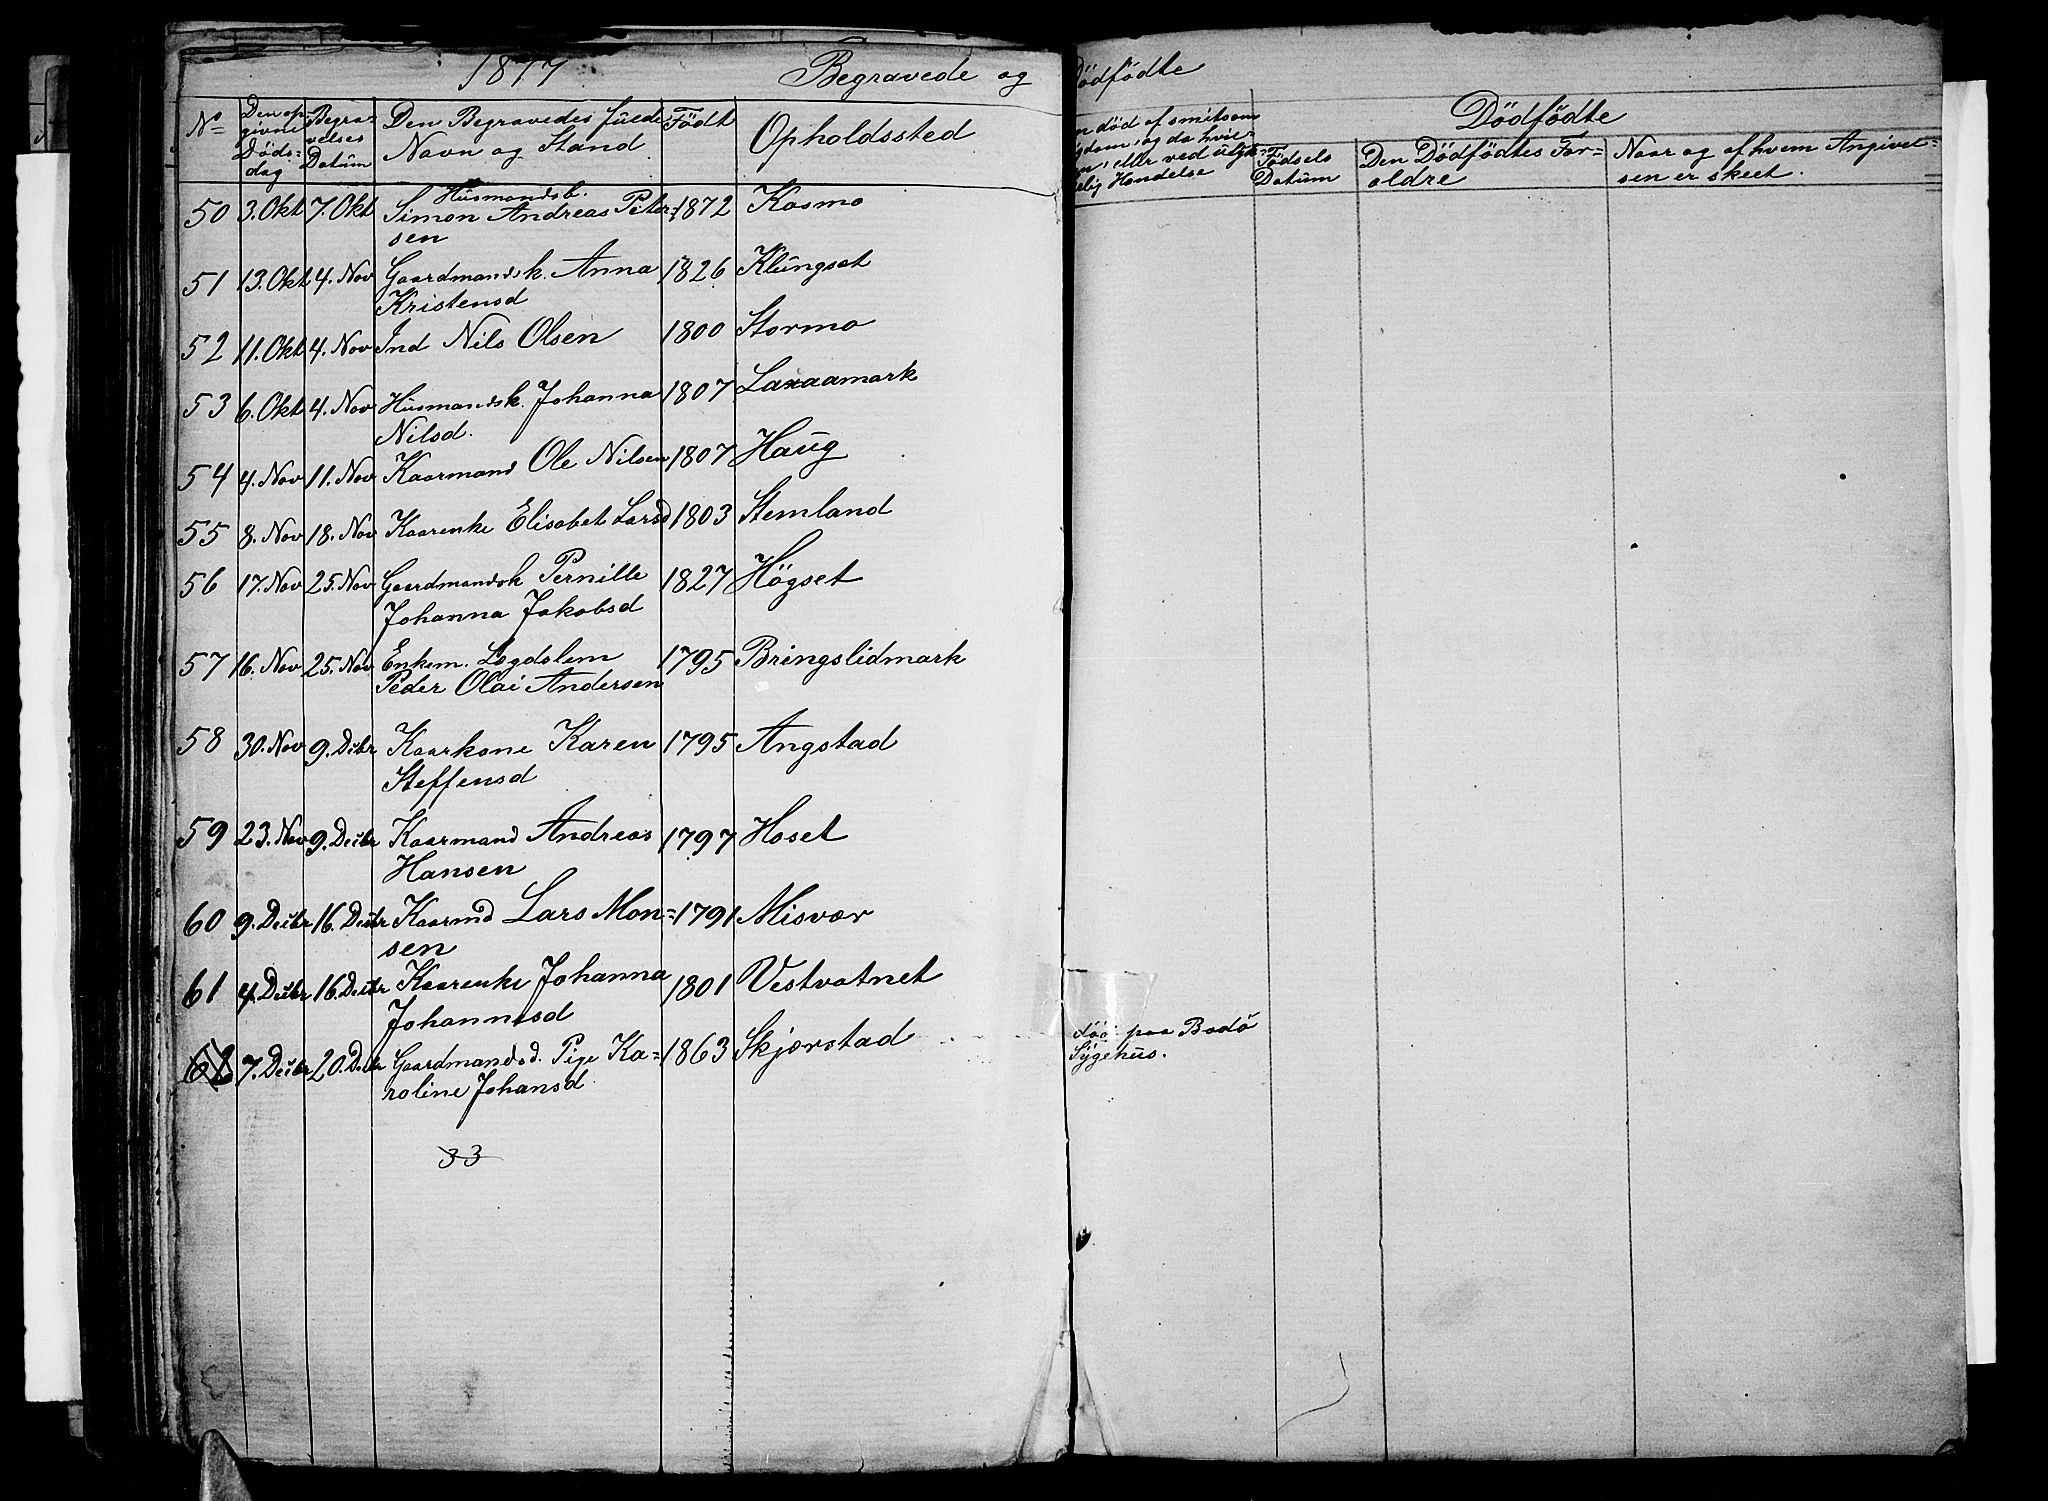 1877 Begravede og
Nº Den opgivne Dödsdag Begravelses Datum Den Begravedes fulde Navn og Stand Födt Opholdssted
50 3. Okt 7. Okt Husmandsb. Simon Andreas Peter= 1872 Kosmo
sen
51 13. Okt 4. Nov Gaardmandsk. Anna 1826 Klungset
Kristensd
52 11. Okt 4. Nov Ind Nils Olsen 1800 Stormo
53 6. Okt 4. Nov Husmandsk. Johanna 1807 Laxaamark
Nilsd.
54 4. Nov 11. Nov Kaarmand Ole Nilsen 1807 Haug
55 8. Nov 18. Nov Kaarenke Elisabet Larsd 1803 Stemland
56 17. Nov 25. Nov Gaardmandsk Pernille 1827 Högset
Johanna Jakobsd
57 16. Nov 25. Nov Enkem. Legdslem 1795 Bringslidmark
Peder Olai Andersen
58 30. Nov 9. Decbr Kaarkone Karen 1795 Angstad
Steffensd
59 23. Nov 9. Decbr Kaarmand Andreas 1797 Hoset
Hansen
60 9. Decbr 16. Decbr Kaarmd Lars Mon= 1791 Misvær
sen
61 4. Decbr 16. Decbr Kaarenke Johanna 1801 Vestvatnet
Johannesd
62 7. Decbr 20. Decbr Gaardmandsd. Pige Ka= 1863 Skjærstad
roline Johansd.
33
Dödfödte
död af smitsom
og da hvil=
eller ved ulyk=
Hendelse
Dödfödte
Födsels Datum Den Dödfödtes For= Naar og af hvem Angivel=
ældre sen er skeet.
död paa Bodö
Sygehus.